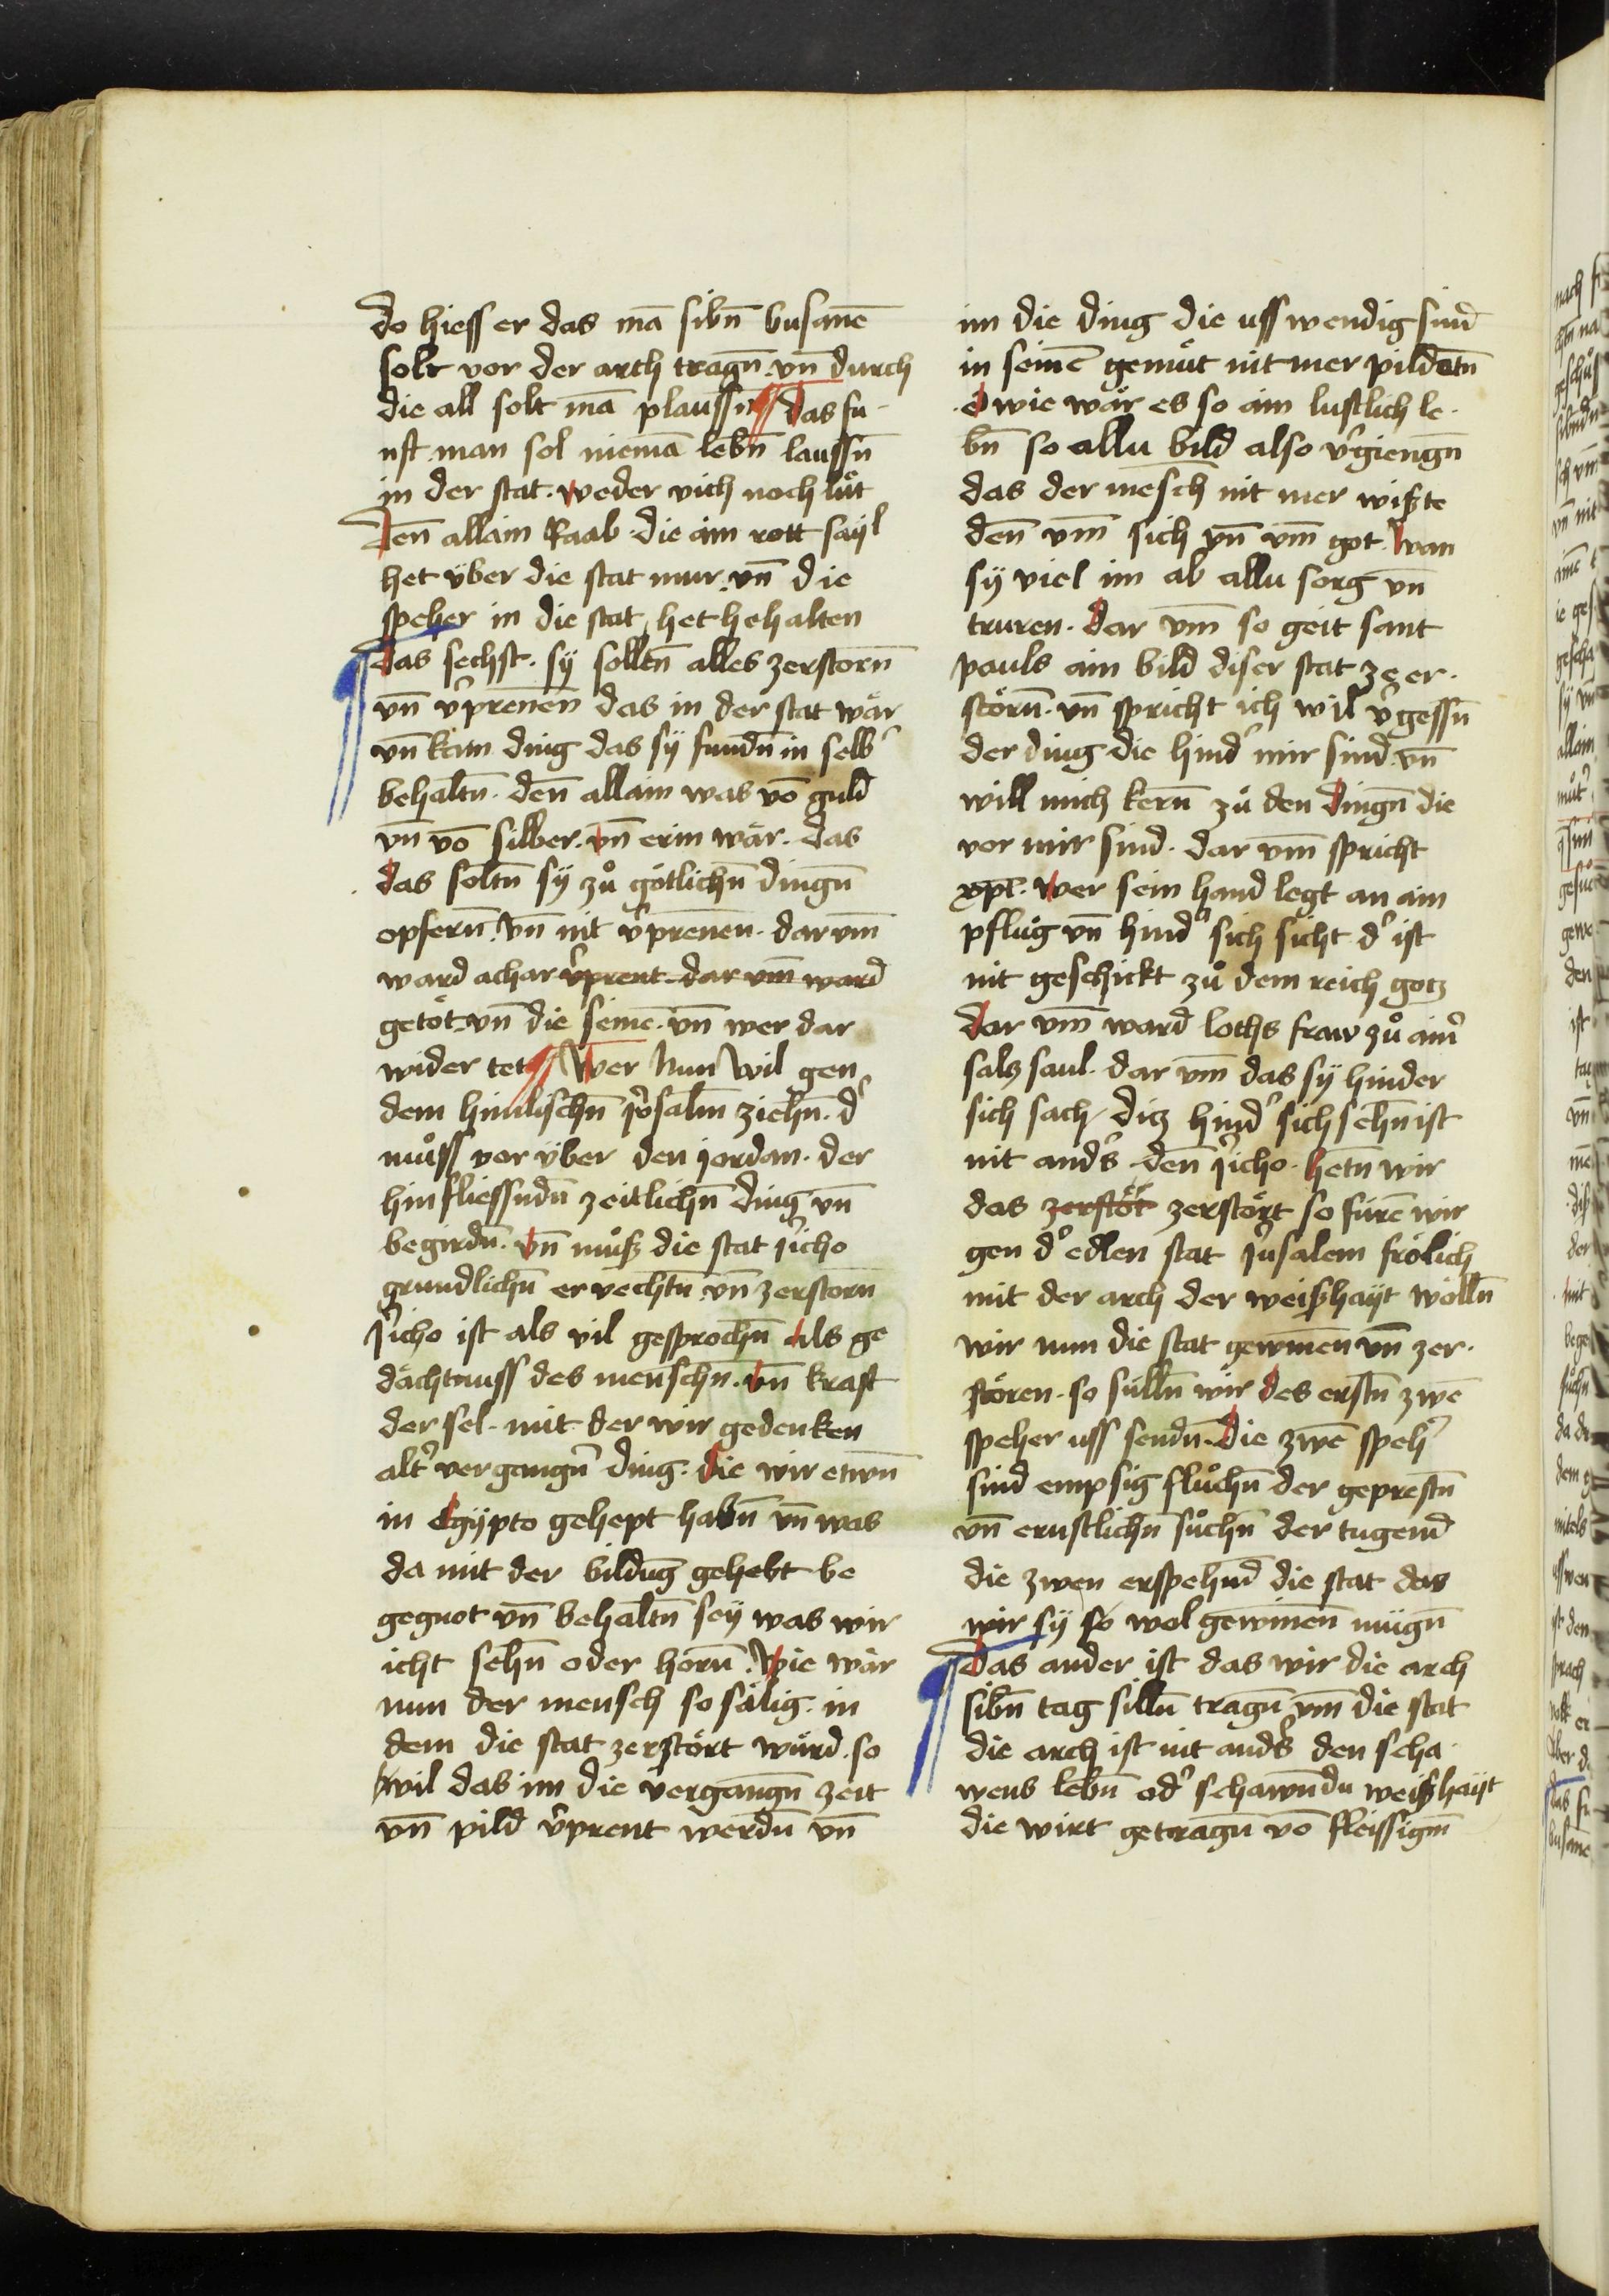 do hiess er das mā sibn̄ busanē
solt vor der arch tragn̄ vn̄ durch
die all solt mā plaussn̄ ¶ das fu-
nft man sol niemā lebn̄ laussn̄
in der stat. weder vich noch lüt
Den̄ allain Raab. die ain rott sayl
het über die stat mur. vn̄ die
speher in die stat het behalten
¶ das sechst. sÿ solltn̄ alles zerstorn̄
vn̄ v̉prenen̄ das in der stat wär
vn̄ kain ding das sÿ fundn̄ in selb̉
behaltn̄. den̄ allain was vō guld
vn̄ vō silber. vn̄ erin wär. das
das soltn̄ sÿ zuͦ götlichn̄ dingn̄
opfern̄. vn̄ nit v̉prenen̄. dar vm̄
ward achar v̉prent dar vm̄ ward
getöt vn̄ die seinē. vn̄ wer dar
wider tet ¶ Wer Nun wil gen
dem himlischn̄ jr̉osalm̄ ziehn̄. d̉
muͦss vor über den jordan. der
hin fliessndn̄ zeitlichn̄ ding vn̄
begirdn̄. vn̄ muͦß die stat j̉icho
grundlichn̄ er vechtn̄ vn̄ zerstorn̄
J̉icho ist als vil gesprochn̄ als ge
dächtnuss des menschn̄. vn̄ kraft
der sel. mit der wir gedenken
alt̉ vergangn̄ ding. die wir etwn̄
in egÿpto gehept habn̄ vn̄ was
da mit der bildūg gehebt be
gegnot vn̄ behaltn̄ seÿ was wir
icht sehn̄ oder horn̄. Wie wär
nun der mensch so sälig. in
dem die stat zerstört würd. so
wil das im die vergangn̄ zeit
vn̄ pild v̉prent werdn̄ vn̄
im die ding die uss wendig sind
in seinē gemüt nit mer pildetn̄
. O wie wär es so ain lustlich le-
bn̄ so allu bild also v̉giengn̄
das der mēsch nit mer wißte
den̄ vm̄ sich vn̄ vm̄ got. Wan
sÿ viel im ab allu sorg vn̄
truren. dar vm̄ so geit sant
pauls ain bild diser stat ze er-
störn̄. vn̄ spricht ich wil v̉gessn̄
der ding die hind̉ mir sind. vn̄
will mich kern̄ zuͦ den dingn̄ die
vor mir sind. dar vm̄ spricht
xp̄c. wer sein hand legt an ain
pflug vn̄ hind̉ sich sicht d̉ ist
nit geschickt zuͦ dem reich gotz
dar vm̄ ward loths fraw zuͦ ain̉
salz saul. dar vm̄ das sÿ hinder
sich sach / diz hind̉ sich sehn̄ ist
nit and̉s den̄ j̉icho. hetn̄ wir
das zerstöt zerstört so furē wir
gen d̉ edlen stat j̉usalem frölich
mit der arch der weißhayt wölln̄
wir nun die stat gewinen̄ vn̄ zer-
stören. so sülln̄ wir des erstn̄ zwē
speher uss sendn̄. die zwē speh̉
sind empsig fluͦchn̄ der geprestn̄
vn̄ ernstlichn̄ suͦchn̄ der tugend
die zwen erspehnd die stat das
wir sÿ so wol gewinen̄ mügn̄
¶ das ander ist das wir die arch
sibn̄ tag sülln̄ tragn̄ vm̄ die stat
die arch ist nit and̉s den scha-
wens lebn̄ od̉ schawn̄du weißhayt
die wirt getragn̄ vō fleissigm̄